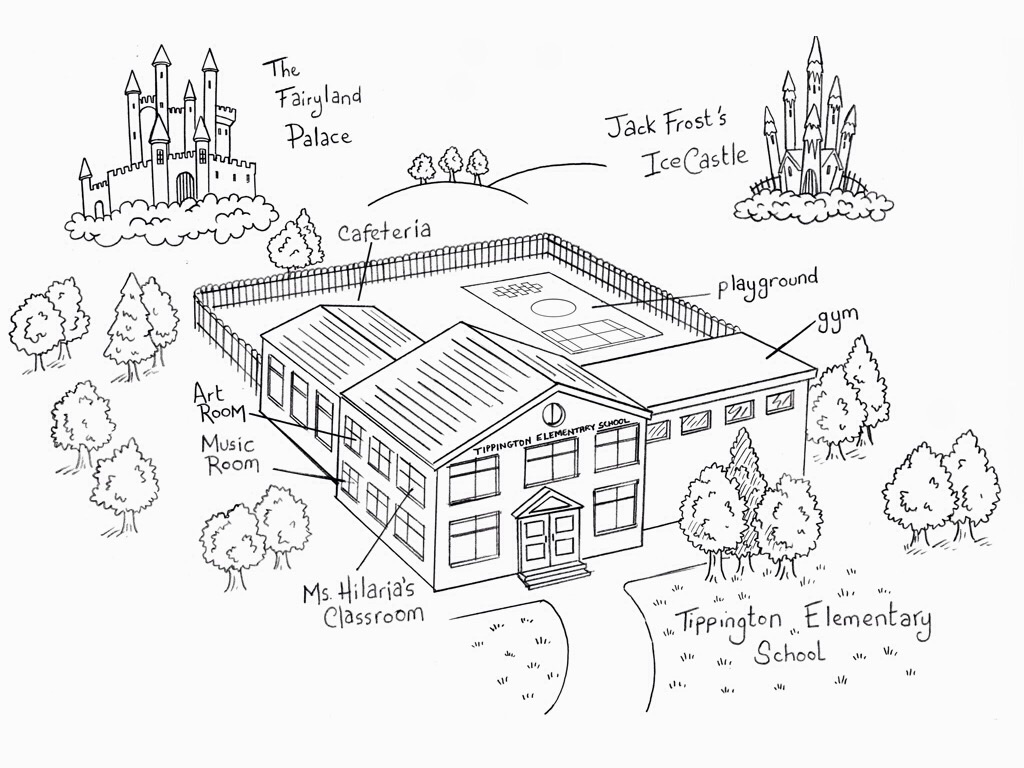 The
Fairyland
Palace
Jack Frost's
Ice Castle
Cafeteria
playground
gym
Art
Room
Music
Room
TIPPINGTON ELEMENTARY SCHOOL
Ms. Hilaria's
Classroom
Tippington Elementary
School